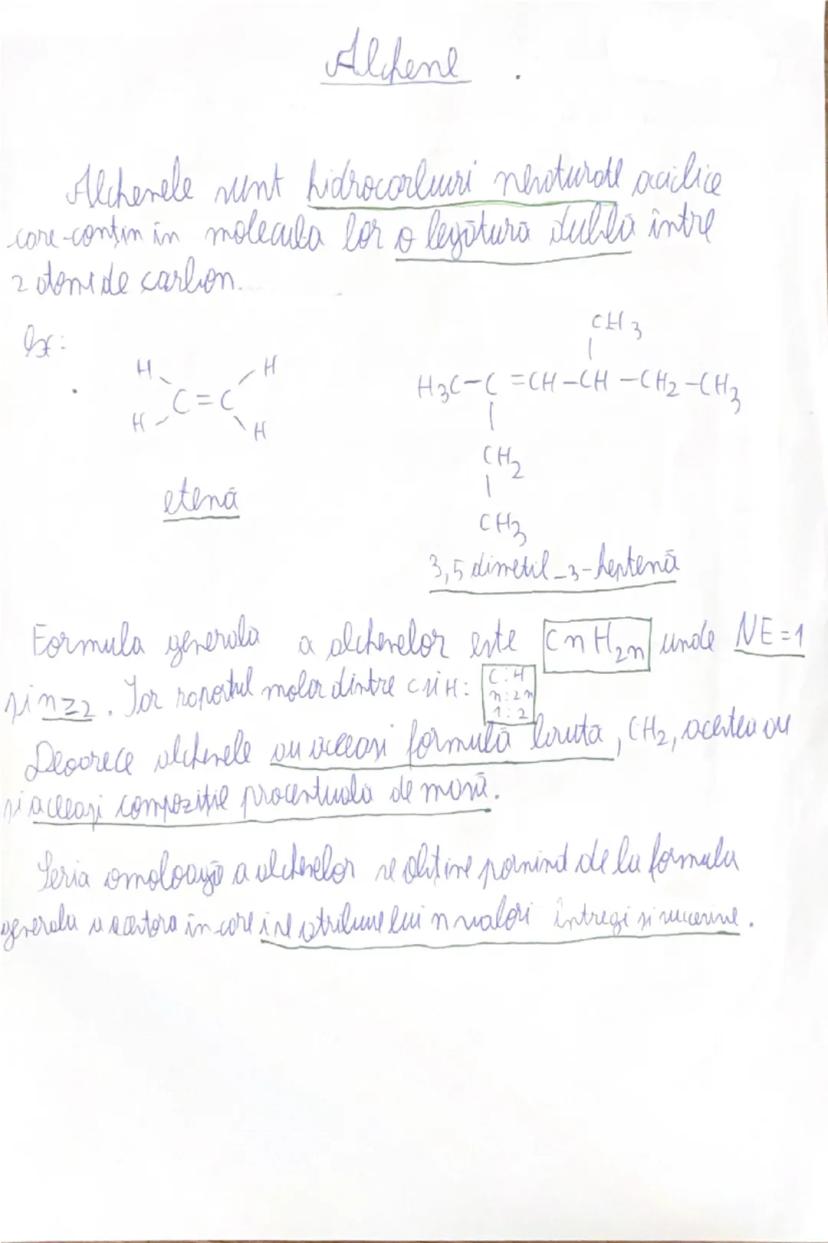 Alchene
Alchenele sunt hidrocarburi nesaturate aciclice
care conțin în molecula lor o legătură dublă între
2 atomi de carbon.
Ex:
H H
C=C
H H
etenă
CH3
|
H3C-C=CH-CH-CH2-CH3
|
CH2
|
CH3
3,5 dimetil-3-heptenă
Formula generala a alchenelor este CnH2n unde NE=1
și n≥2. Iar raportul molar dintre C și H: C:H
n:2n
1:2
Deoarece alchenele au aceeași formulă brută, CH2, acestea au
și aceeași compoziție procentuală de masă.
Seria omoloagă a alchenelor se obține pornind de la formula
generala a acestora în care i se atribuie lui n valori întregi și succesive.